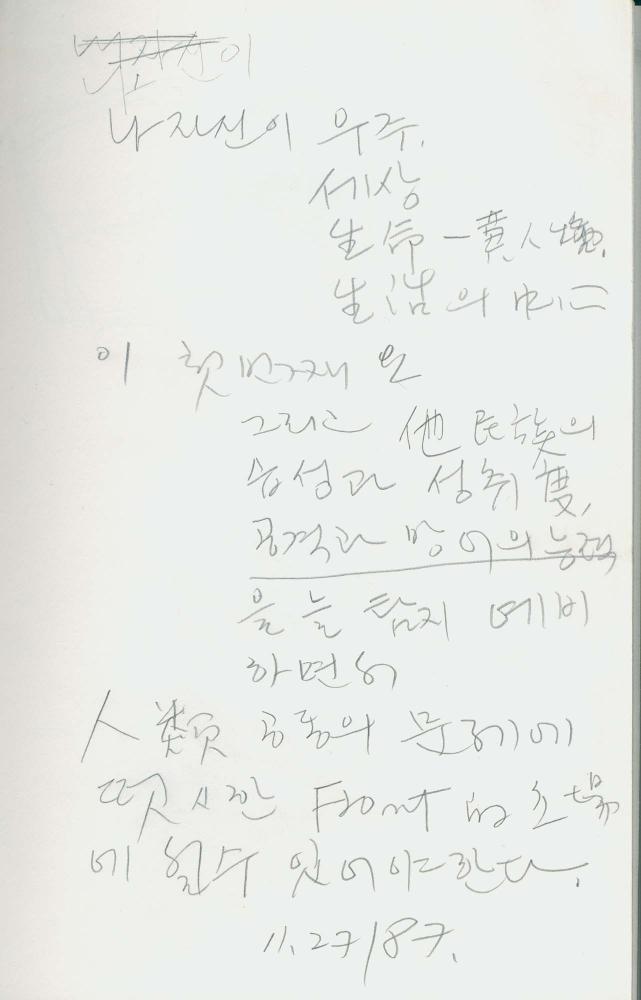 나 자신이 우주,
세상
生命 一貫, 人
生活의 中心
이 첫번째요
그리고 他民族의
습성과 성취度,
공격과 방어의 능력
을 늘 탐지 예비
하면서
人類 공동의 문제에
떳시한 Front 的 立場
에 설수 있어야 한다.
11. 27/87.